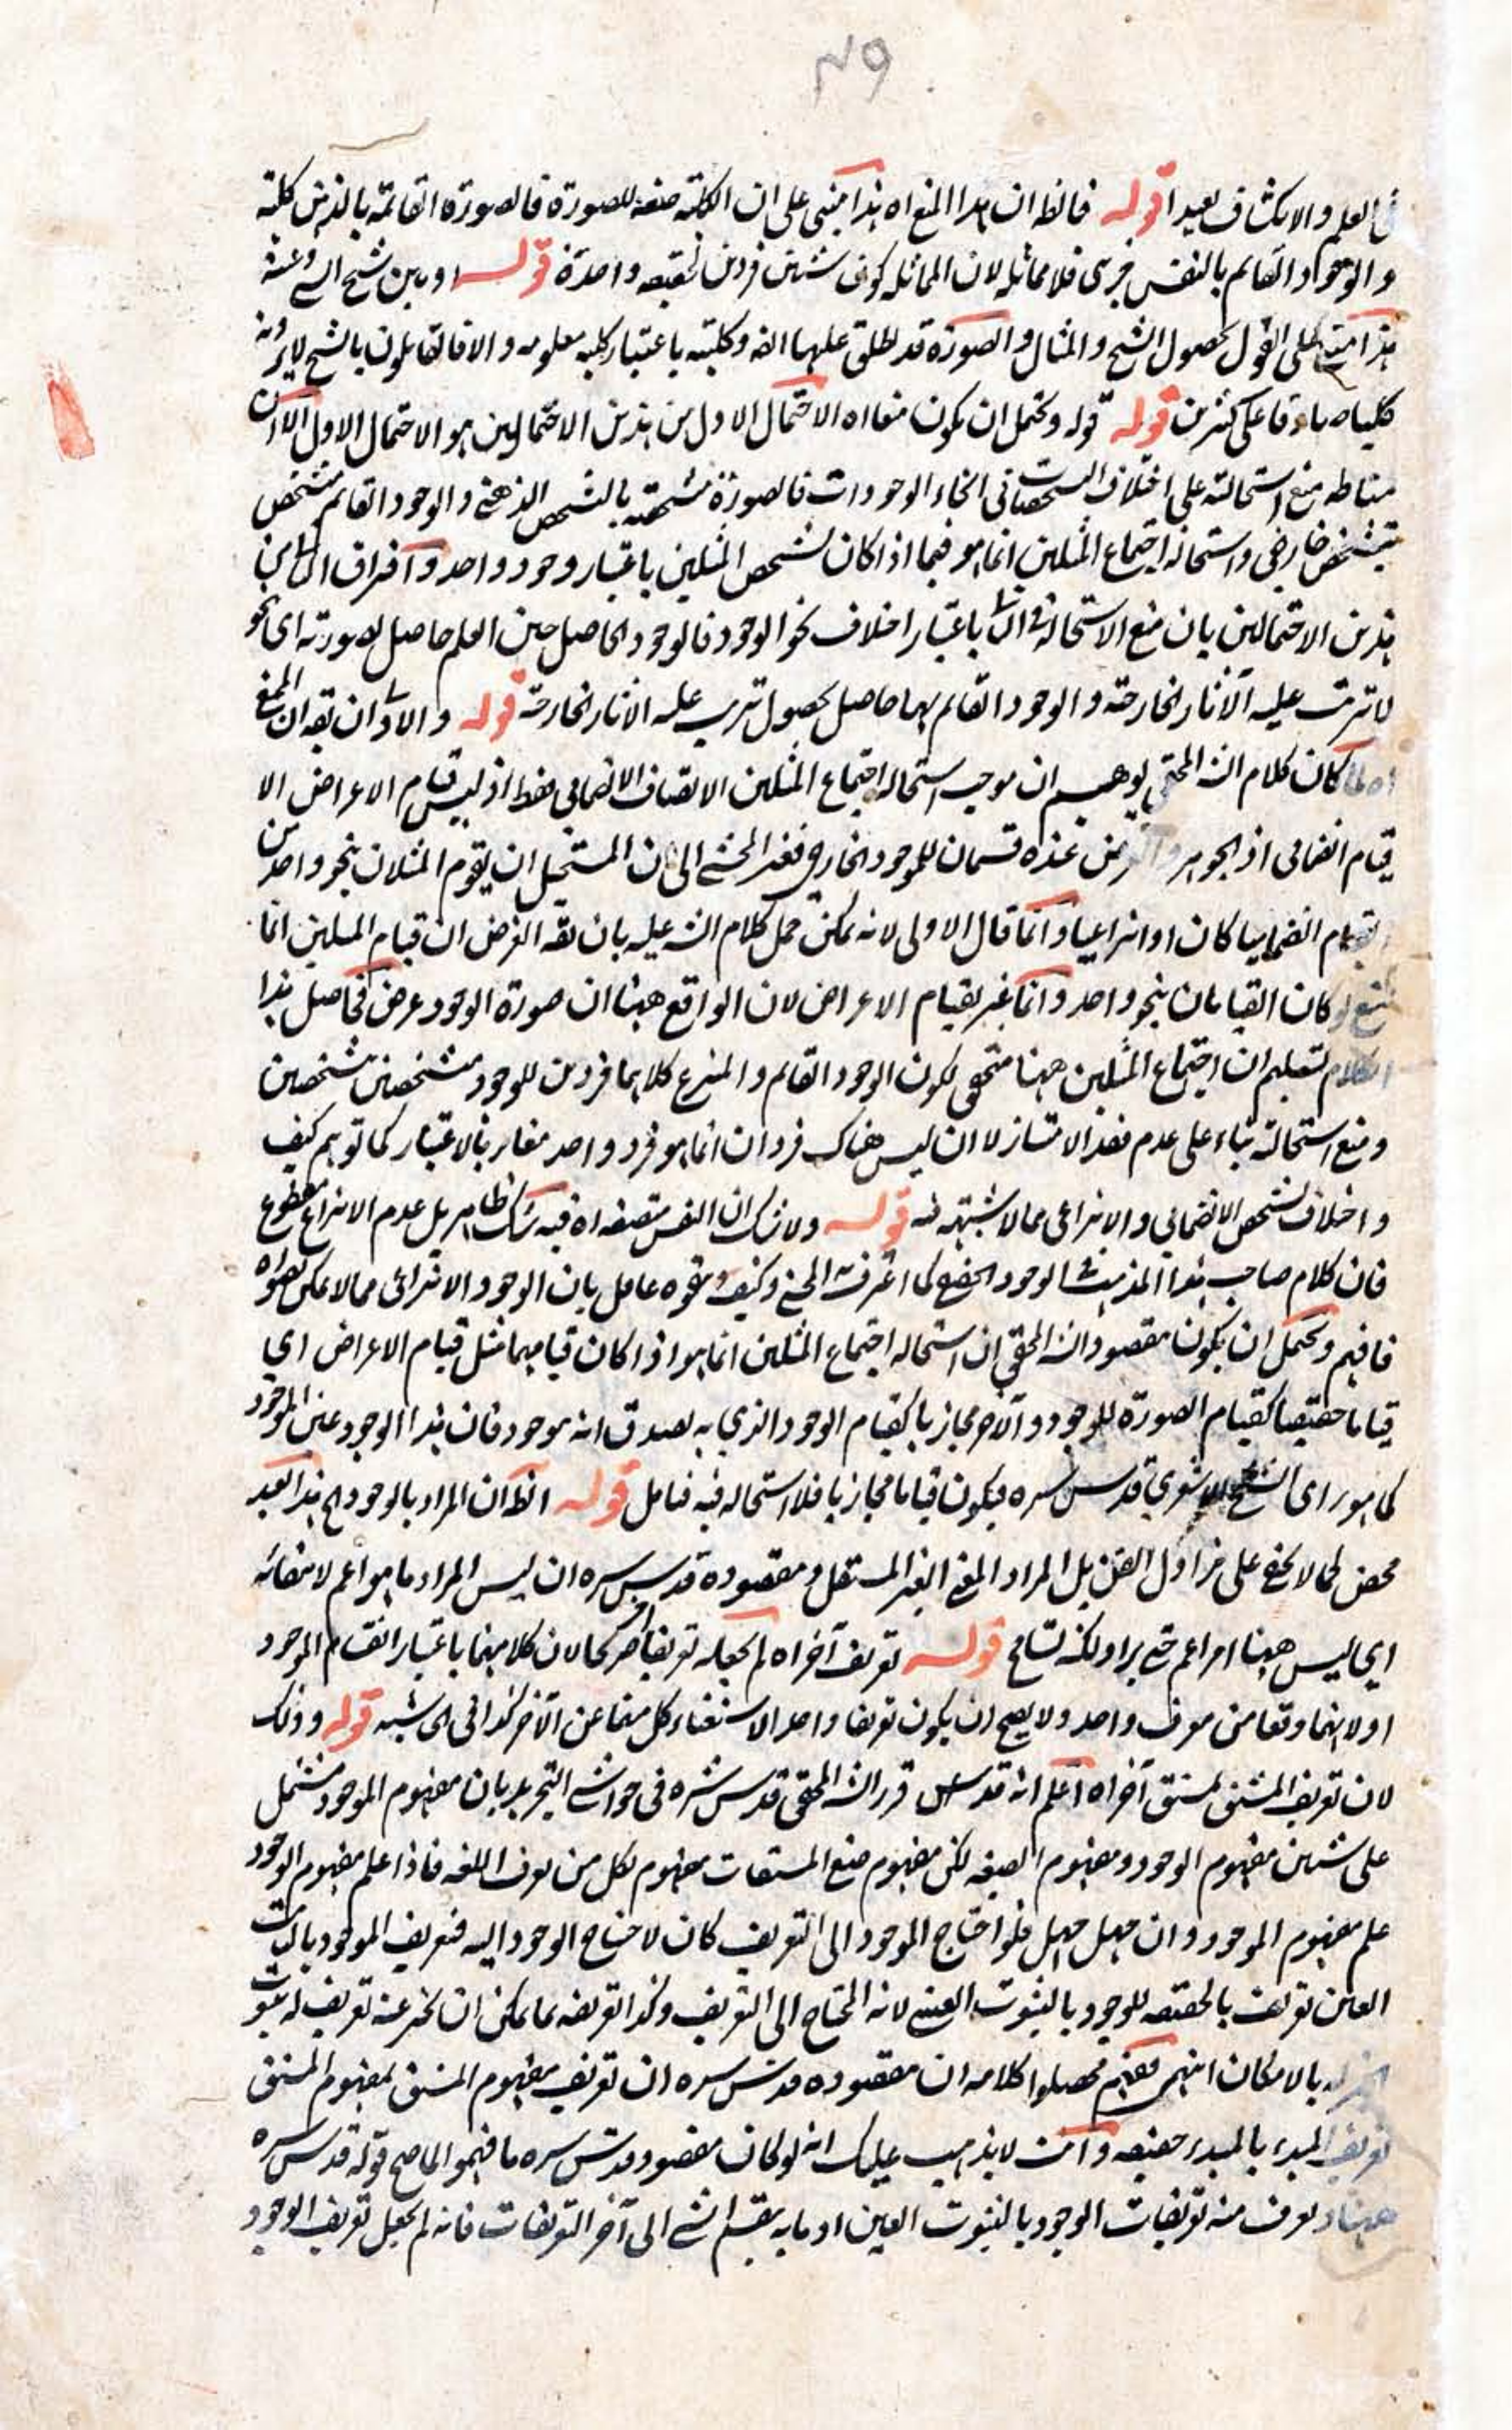 ٤٩
العلم والانكشاف بعيد اقوله فالظ ان هذا المنع اه هذا مبنى على ان الكلية صفة للصورة فالصورة القائمة بالذهن كلية
والوجود القايم بالنفس جزئى فلا مماثلة لان المماثلة كون شيئين فردين لحقيقه واحدة قوله او بين شبح الشى وعينه
هذا مبنى على القول بحصول الشبح والمثال والصورة قد يطلق عليها ايضه وكليته باعتبار كلية معلومه والا فالقايلون بالشبح لا يرونه
كليا صادقا على كثيرين قوله قوله ويحتمل ان يكون منعا اه الاحتمال الاول من هذين الاحتمالين هو الاحتمال الاول الا ان
مناطه منع استحالته على اختلاف التشخصات فى انحاء الوجودات فالصورة متشخصة بالتشخص الذهنى والوجود القايم متشخص
بتشخص خارجى واستحالة اجتماع المثلين انما هو فيما اذا كان تشخص المثلين باعتبار وجود واحد وافتراق الثانى من
هذين الاحتمالين بان منع الاستحالة فى الثانى باعتبار اختلاف نحو الوجود فالوجود الحاصل حين العلم حاصل بصورته اى نحو
لا يترتب عليه الآثار الخارجة والوجود القايم بها حاصل بحصول يترتب عليه الاثار الخارجة قوله والاولى ان يقه ان المنع
اه لما كان كلام الشه المحقق يوهم ان موجب استحالة اجتماع المثلين الاتصاف الانضمامى فقط اذ ليس قيام الاعراض الا
قيام انضمامى اذ الجوهر والعرض عنده قسمان للموجود الخارجى فغير المحشى الى ان المستحيل ان يقوم المثلان بنحو واحد من
القيام انضماميا كان او انتزاعيا وانما قال الاولى لانه يمكن حمل كلام الشه عليه بان يقه الغرض ان قيام المثلين انما
يمتنع لو كان القيامان بنحو واحد وانما عبر بقيام الاعراض لان الواقع ههنا ان صورة الوجود عرض فحاصل هذا
الكلام تسليم ان اجتماع المثلين ههنا متحقق لكون الوجود القايم والمنتزع كلاهما فردين للوجود متشخصين بتشخصين
ومنع استحالته بناء على عدم فقد الامتياز لا ان ليس هناك فردان انما هو فرد واحد مغاير بالاعتبار كما توهم كيف
واختلاف تشخص الانضمامى والانتزاعى مما لا شبهة فيه قوله ولا شك ان النفس متصفة اه فيه شك ظاهر بل عدم الانتزاع مقطوع
فان كلام صاحب هذا المذهب فى الوجود الحقيقى كما اعترف به المحشى وكيف يتفوه عاقل بان الوجود الانتزاعى مما لا يمكن تصوره
فافهم ويحتمل ان يكون مقصود الشه المحقق ان استحالة اجتماع المثلين انما هو اذا كان قيامهما مثل قيام الاعراض اى
قياما حقيقيا كقيام الصورة للوجود والآخر مجازيا كقيام الوجود الذى به يصدق انه موجود فان هذا الوجود عين الموجود
كما هو راى الشيخ الاشعرى قدس سره فيكون قياما مجازيا فلا استحالة فيه فتامل قوله الظ ان المراد بالوجود اه هذا العبد
محض لما لا يخفى على مزاول الفن بل المراد المعنى الغير المستقل ومقصوده قدس سره ان ليس المراد ما هو اعم لانتفائه
اى ليس ههنا امر اعم حتى يراد لكنه تسامح قوله تعريف آخر اه لم يجعله تعريفا آخر كما لان كلا منهما باعتبار انقسام الموجود
اولا انهما وقعا من معرف واحد ولا يصح ان يكون تعريفا واحدا لاستغناء كل منهما عن الآخر كذا فى الحاشية قوله وذلك
لان تعريف المشتق بمشتق آخر اه اعلم انه قدس سره قرر الشه المحقق قدس سره فى حواشى التجريد بان مفهوم الموجود مشتمل
على شيئين مفهوم الوجود ومفهوم الصيغة لكن مفهوم صيغ المشتقات مفهوم لكل من يعرف اللغة فاذا علم مفهوم الوجود
علم مفهوم الموجود وان جهل جهل فلو احتاج الموجود الى التعريف كان لاحتياج الوجود اليه فتعريف الموجود بالثابت
العين تعريف بالحقيقه للوجود بالثبوت العينى لانه المحتاج الى التعريف وكذا تعريفه بما يمكن ان يخبر عنه تعريف له بثبوت
الخبر له بالامكان انتهى فهم حصلوا كلامه ان مقصوده قدس سره ان تعريف مفهوم المشتق بمفهوم المشتق
تعريف المبدء بالمبدء حقيقه وانت لا يذهب عليك انه لو كان مقصوده قدس سره ما فهموا لما صح قوله قدس سره
ههنا ويعرف منه تعريفات الوجود بالثبوت العين او ما به ينقسم الشى الى آخر التعريفات فانه لم يجعل تعريف الوجود